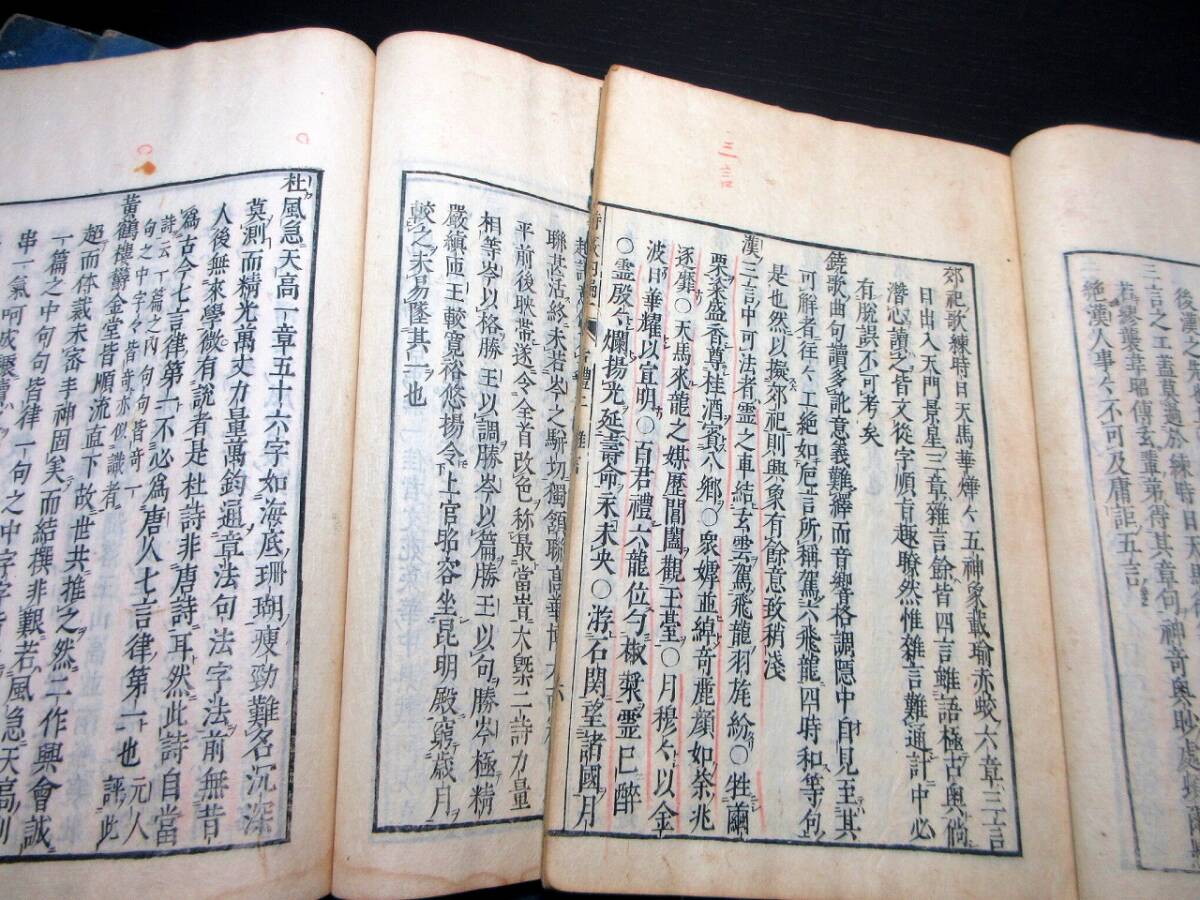 後之
三言之工蓋莫過於練時日天馬
若繆襲韋昭傅玄輩第得其章句神奇奥眇處
絶漢人事々不可及庸詎五言
三言
郊祀歌練時日天馬華燁々五神象載瑜赤蛟六章三言
日出入天門景星三章雜言餘皆四言雖語極古奥倘
潛心讀之皆文從字順旨趣瞭然惟雜言難通計中必
有脱誤不可考矣
鐃歌曲句讀多訛意義難繹而音響格調隱中自見至其
可解者往々工絶如巵言所稱駕六飛龍四時和等句
是也然以擬郊祀則興象有餘意致稍淺
漢三言中可法者靈之車結玄雲駕飛龍羽旄紛○牲繭
栗粢盛香尊桂酒賓八鄉○衆嫭並綽奇麗顔如荼兆
逐靡○天馬來龍之媒歷閶闔觀玉臺○月穆々以金
波日華耀以宣明○百君禮六龍位勺椒漿靈已醉
○靈殷々爛揚光延壽命永未央○游石関望諸國月
聯甚活終未若岑之駢切獨頷聯高華博大
平前後映帶遂令全首改色称最當昔大槩二詩力量
相等岑以格勝王以調勝岑以篇勝王以句勝岑極精
嚴縝匝王較寛裕悠揚令上官昭容坐昆明殿窮歳月
較之未易墜其一也
杜風急天高一章五十六字如海底珊瑚瘦勁難名沉深
莫測而精光萬丈力量萬鈞通章法句法字法前無昔
人後無來學微有説者是杜詩非唐詩耳然此詩自當
爲古今七言律第一不必爲唐人七言律第一也 元人評此
詩云一篇之内句句皆奇一句之中字々皆奇亦似識者
黄鶴樓鬱金堂皆順流直下故世共推之然二作興會誠
超而体裁未密丰神固美而結撰非艱若風急天高則
一篇之中句句皆律一句之中字字皆
串一氣呵成驟讀